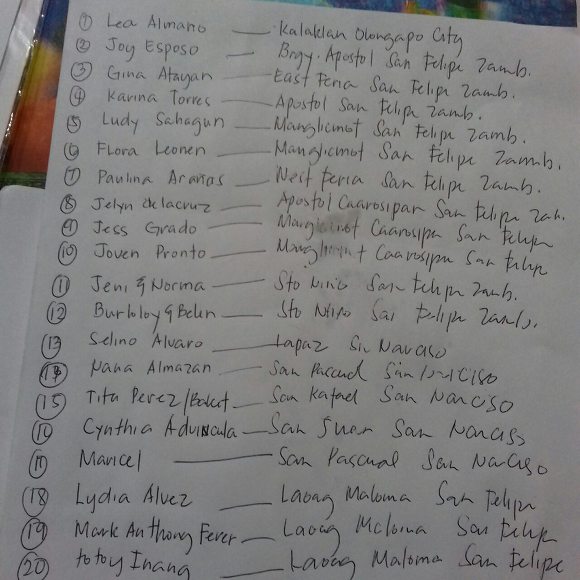 1 Lea Almario — Kalaklan Olongapo City
2 Joy Esposo — Brgy. Apostol San Felipe Zamb.
3 Gina Atayan — East Feria San Felipe Zamb.
4 Karina Torres — Apostol San Felipe Zamb.
5 Ludy Sahagun — Manglicmot San Felipe Zamb.
6 Flora Leonen — Manglicmot San Felipe Zamb.
7 Paulina — West Feria San Felipe Zamb.
8 Jelyn delacruz — Apostol Caarosipan San Felipe Zam.
9 Jess Grado — Manglicmot Caarosipn San Felipe
10 Joven Pronto — Manglicmot Caarosipn San Felipe
11 Jeni & Norma — Sto Niño San Felipe Zamb.
12 Burloloy & Belen — Sto Niño San Felipe Zamb.
13 Selino Alvaro — Lapaz Sn Narciso
14 Nana Almazan — San Pascual San Narciso
15 Tita Perez/ — San Rafael San Narciso
16 Cynthia Advincula — San Juan San Narciso
17 Maricel — San Pascual San Narciso
18 Lydia Alvez — Laoag Maloma San Felipe
19 Mark Anthony — Laoag Maloma San Felipe
20 totoy Inang — Laoag Maloma San Felipe